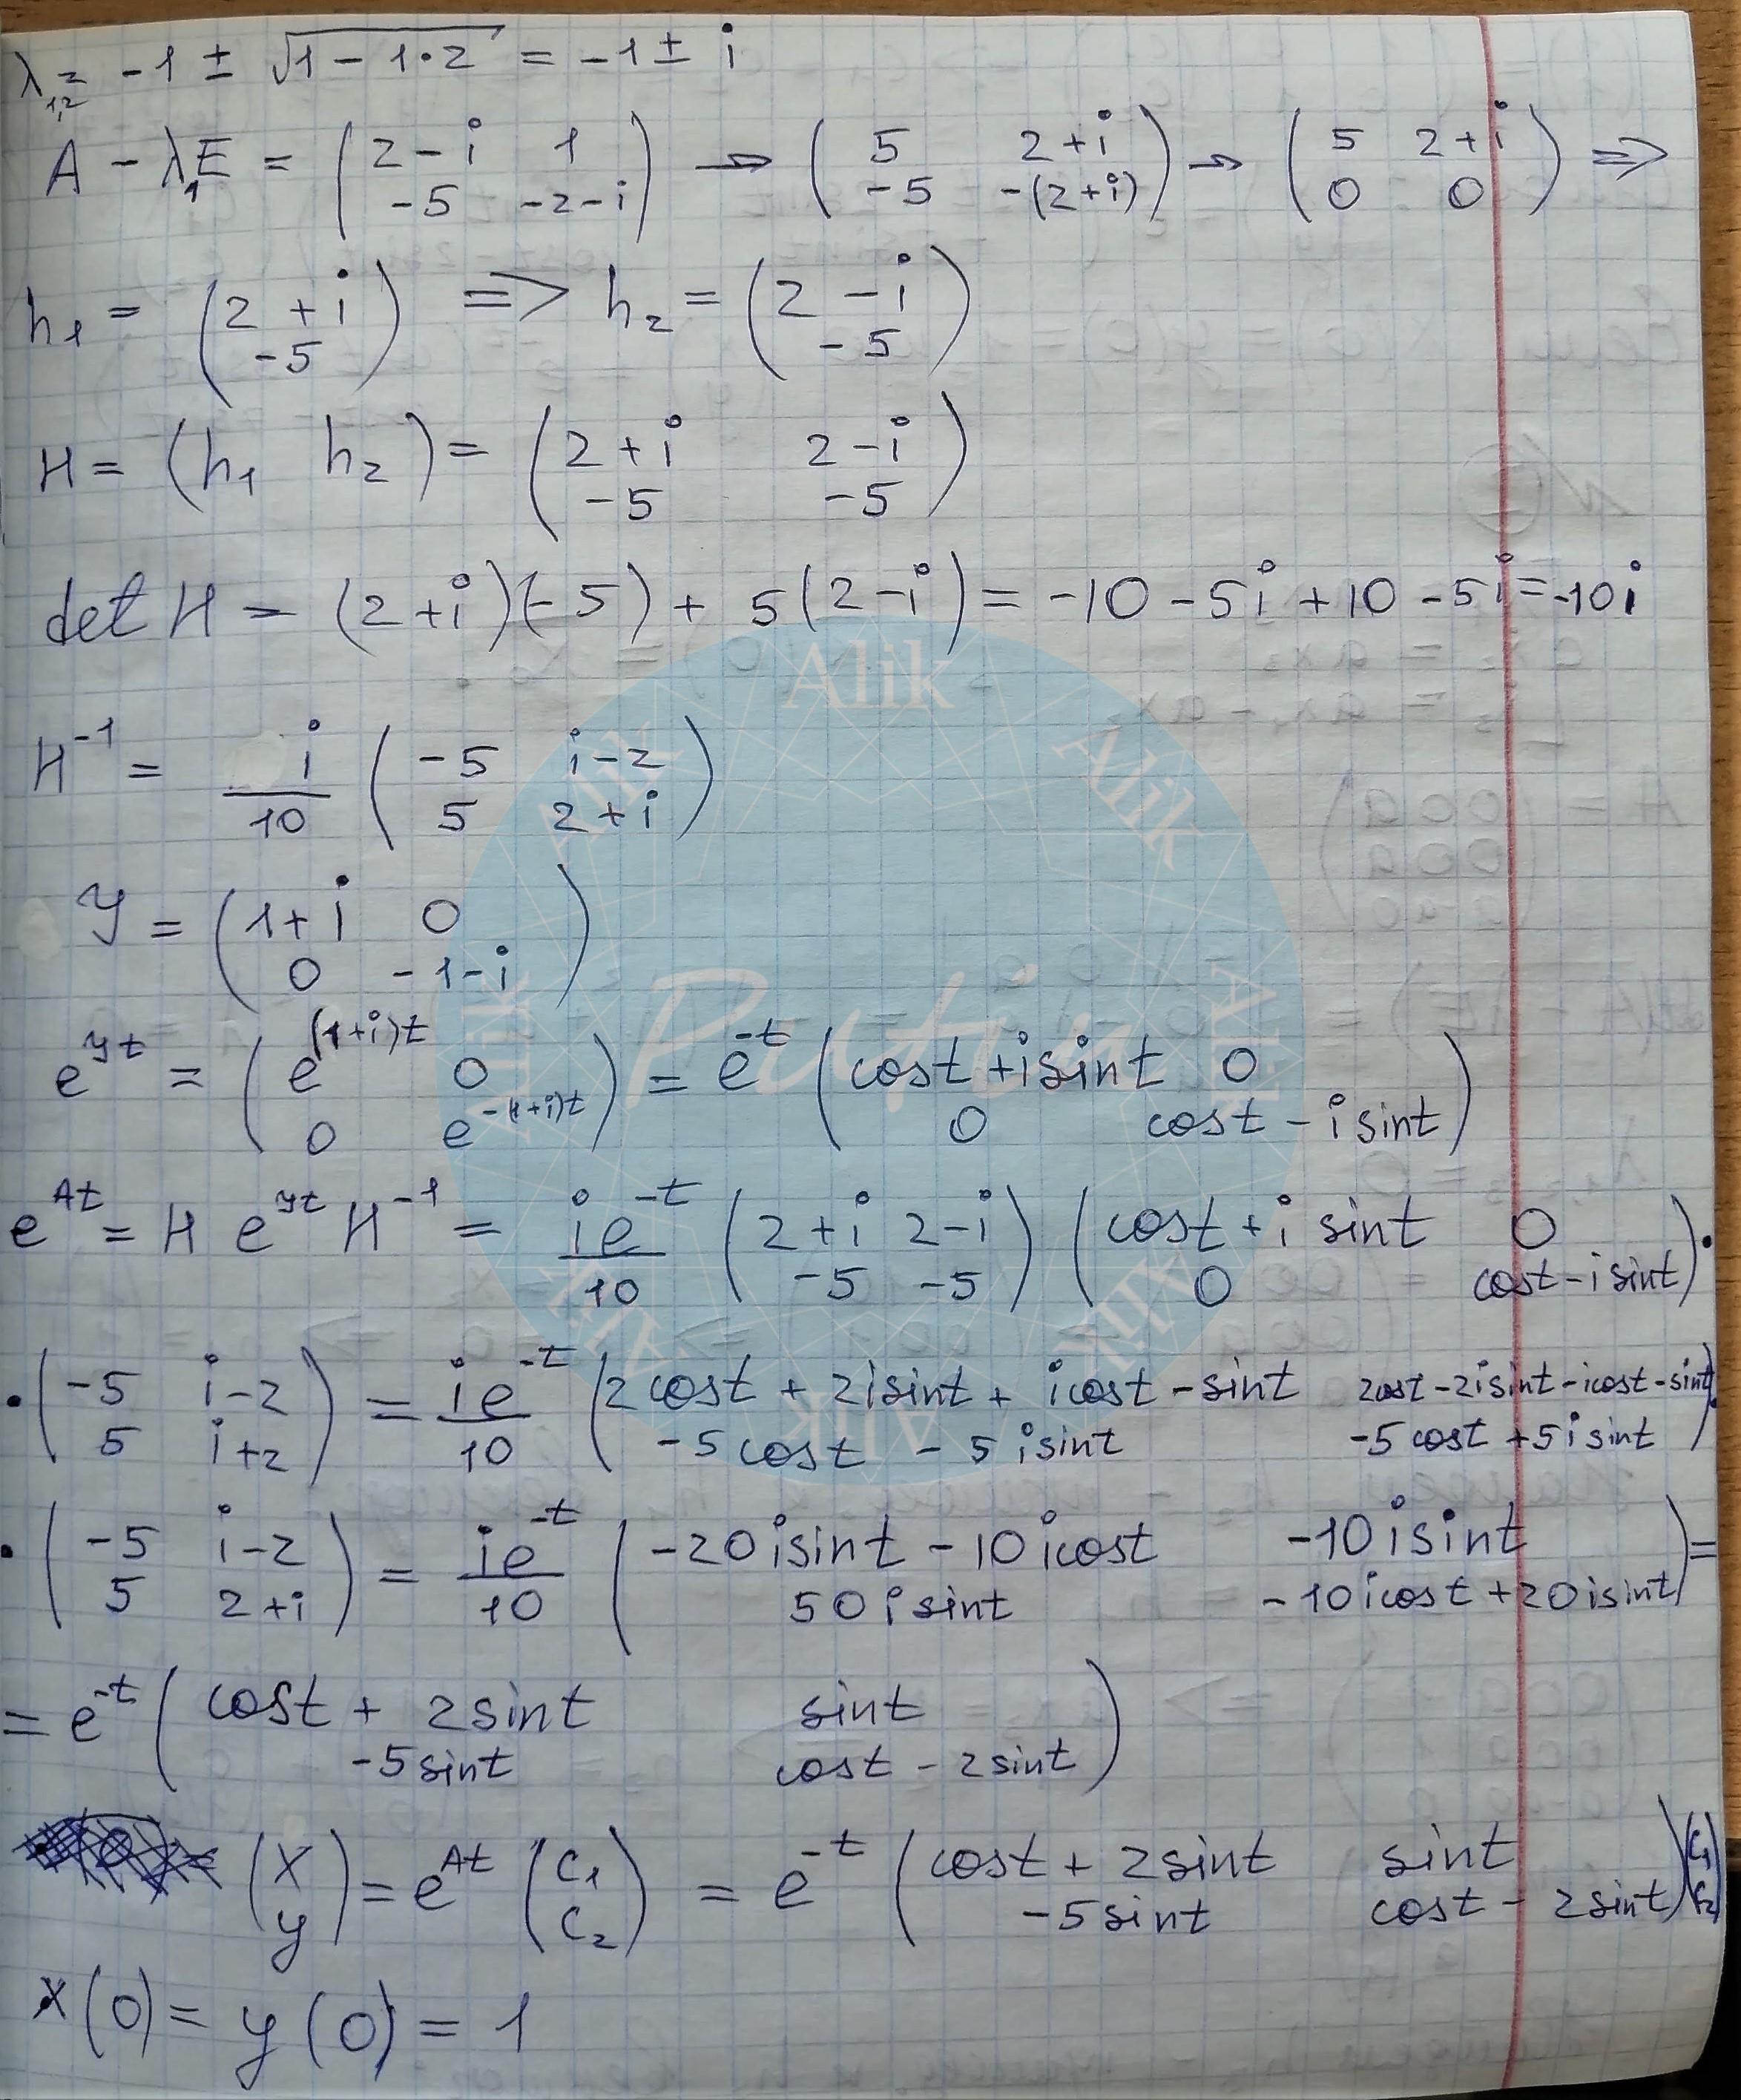 λ₁,₂ = -1 ± √(1 - 1·2) = -1 ± i
A - λ₁E = (2-i 1; -5 -2-i) → (5 2+i; -5 -(2+i)) → (5 2+i; 0 0) =>
h₁ = (2+i; -5) => h₂ = (2-i; -5)
H = (h₁ h₂) = (2+i 2-i; -5 -5)
det H = (2+i)(-5) + 5(2-i) = -10 - 5i + 10 - 5i = -10i
H⁻¹ = i/10 (-5 i-2; 5 2+i)
Y = (1+i 0; 0 -1-i)
e^{Yt} = (e^{(1+i)t} 0; 0 e^{-(1+i)t}) = e^{-t} (cost + isint 0; 0 cost - isint)
e^{At} = H e^{Yt} H⁻¹ = ie^{-t}/10 (2+i 2-i; -5 -5) (cost + i sint 0; 0 cost - isint) ·
· (-5 i-2; 5 i+2) = ie^{-t}/10 (2cost + 2isint + icost - sint 2cost - 2isint - icost - sint; -5cost - 5isint -5cost + 5isint) ·
· (-5 i-2; 5 2+i) = ie^{-t}/10 (-20isint - 10icost -10isint; 50isint -10icost + 20isint) =
= e^{-t} (cost + 2sint sint; -5sint cost - 2sint)
(x; y) = e^{At} (C₁; C₂) = e^{-t} (cost + 2sint sint; -5sint cost - 2sint) (C₁; C₂)
x(0) = y(0) = 1
Alik
Alik
Alik
Alik
Alik
Alik
Alik
Alik
Putin